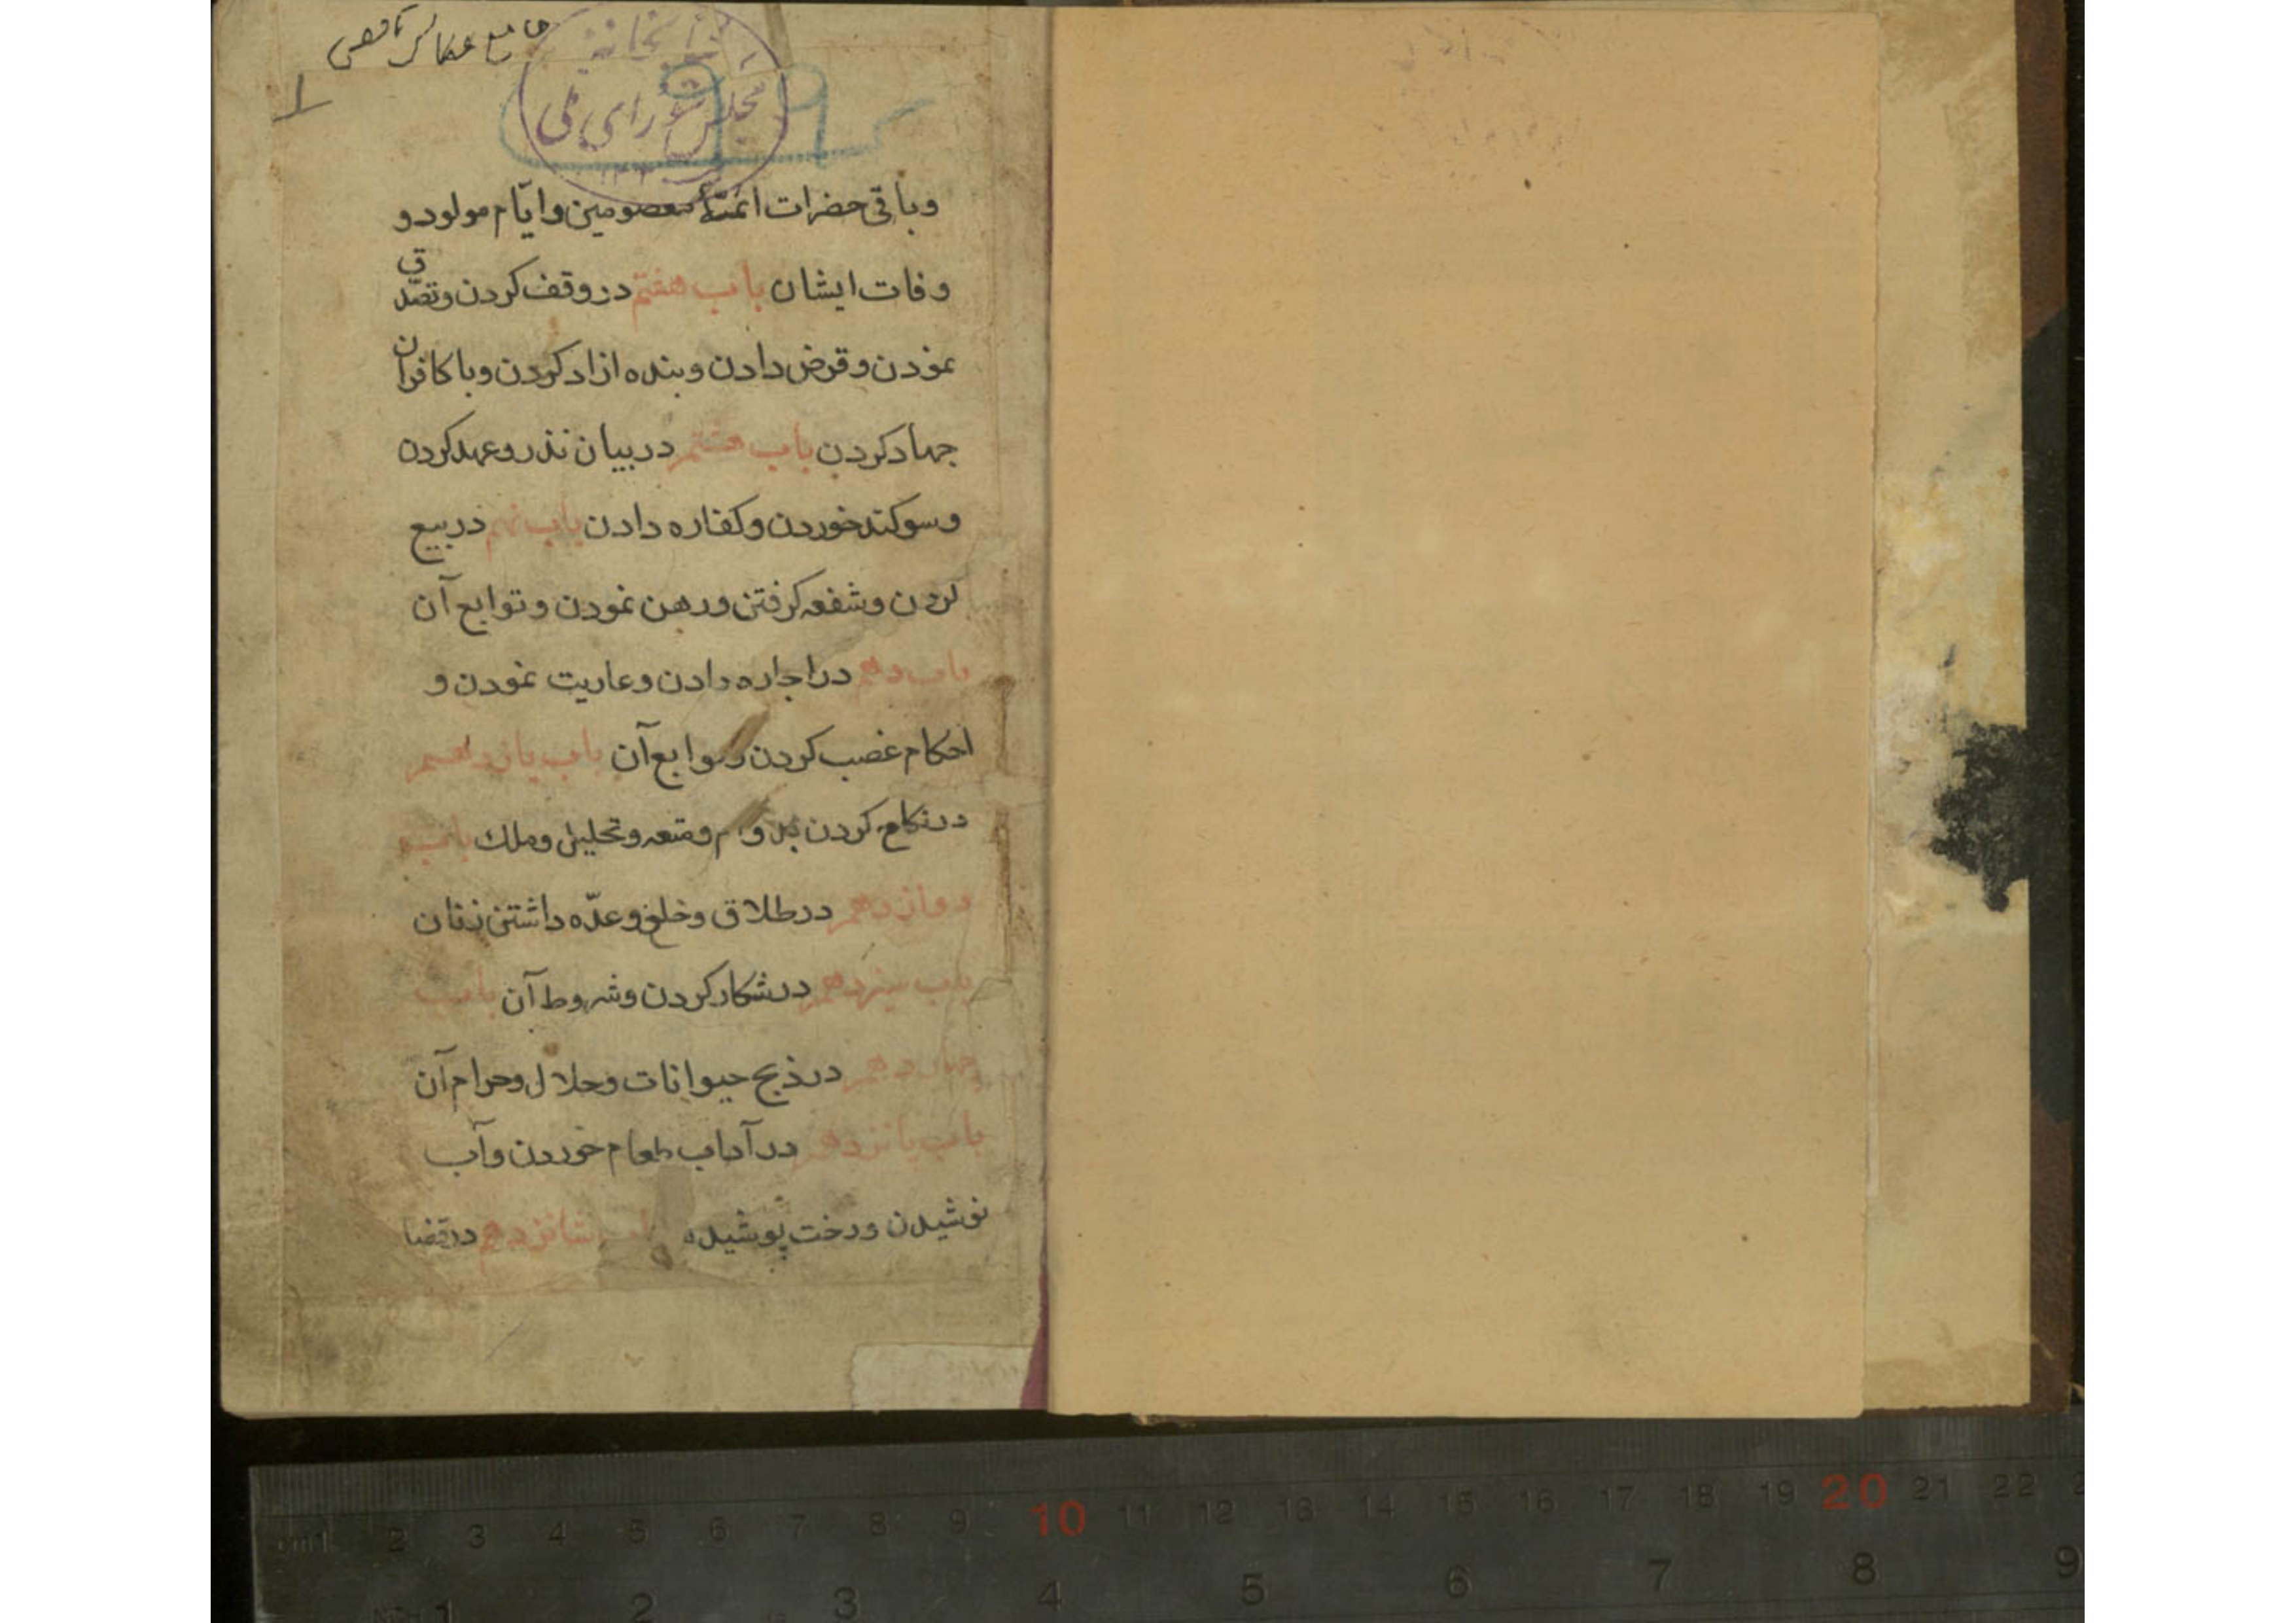 جامع عباسی ناقص
۱
کتابخانه
مجلس شورای ملی
و باقی حضرات ائمّهٔ معصومین و ایّام مولود و
وفات ایشان باب هفتم در وقف کردن و تصدّق
نمودن و قرض دادن و بنده ازاد کردن و با کافران
جهاد کردن باب هشتم در بیان نذر و عهد کردن
و سوکند خوردن و کفاره دادن باب نهم در بیع
کردن و شفعه کرفتن و رهن نمودن و توابع آن
باب دهم در اجاره دادن و عاریت نمودن و
احکام غصب کردن و توابع آن باب یازدهم
در نکاح کردن بدوام و متعه و تحلیل و ملک باب
دوازدهم در طلاق و خلع و عدّه داشتن زنان
باب سیزدهم در شکار کردن و شروط آن باب
چهاردهم در ذبح حیوانات و حلال و حرام آن
باب پانزدهم در آداب طعام خوردن و آب
نوشیدن و رخت پوشیده باب شانزدهم در قضا
cm1 2 3 4 5 6 7 8 9 10 11 12 13 14 15 16 17 18 19 20 21 22
1 2 3 4 5 6 7 8 9